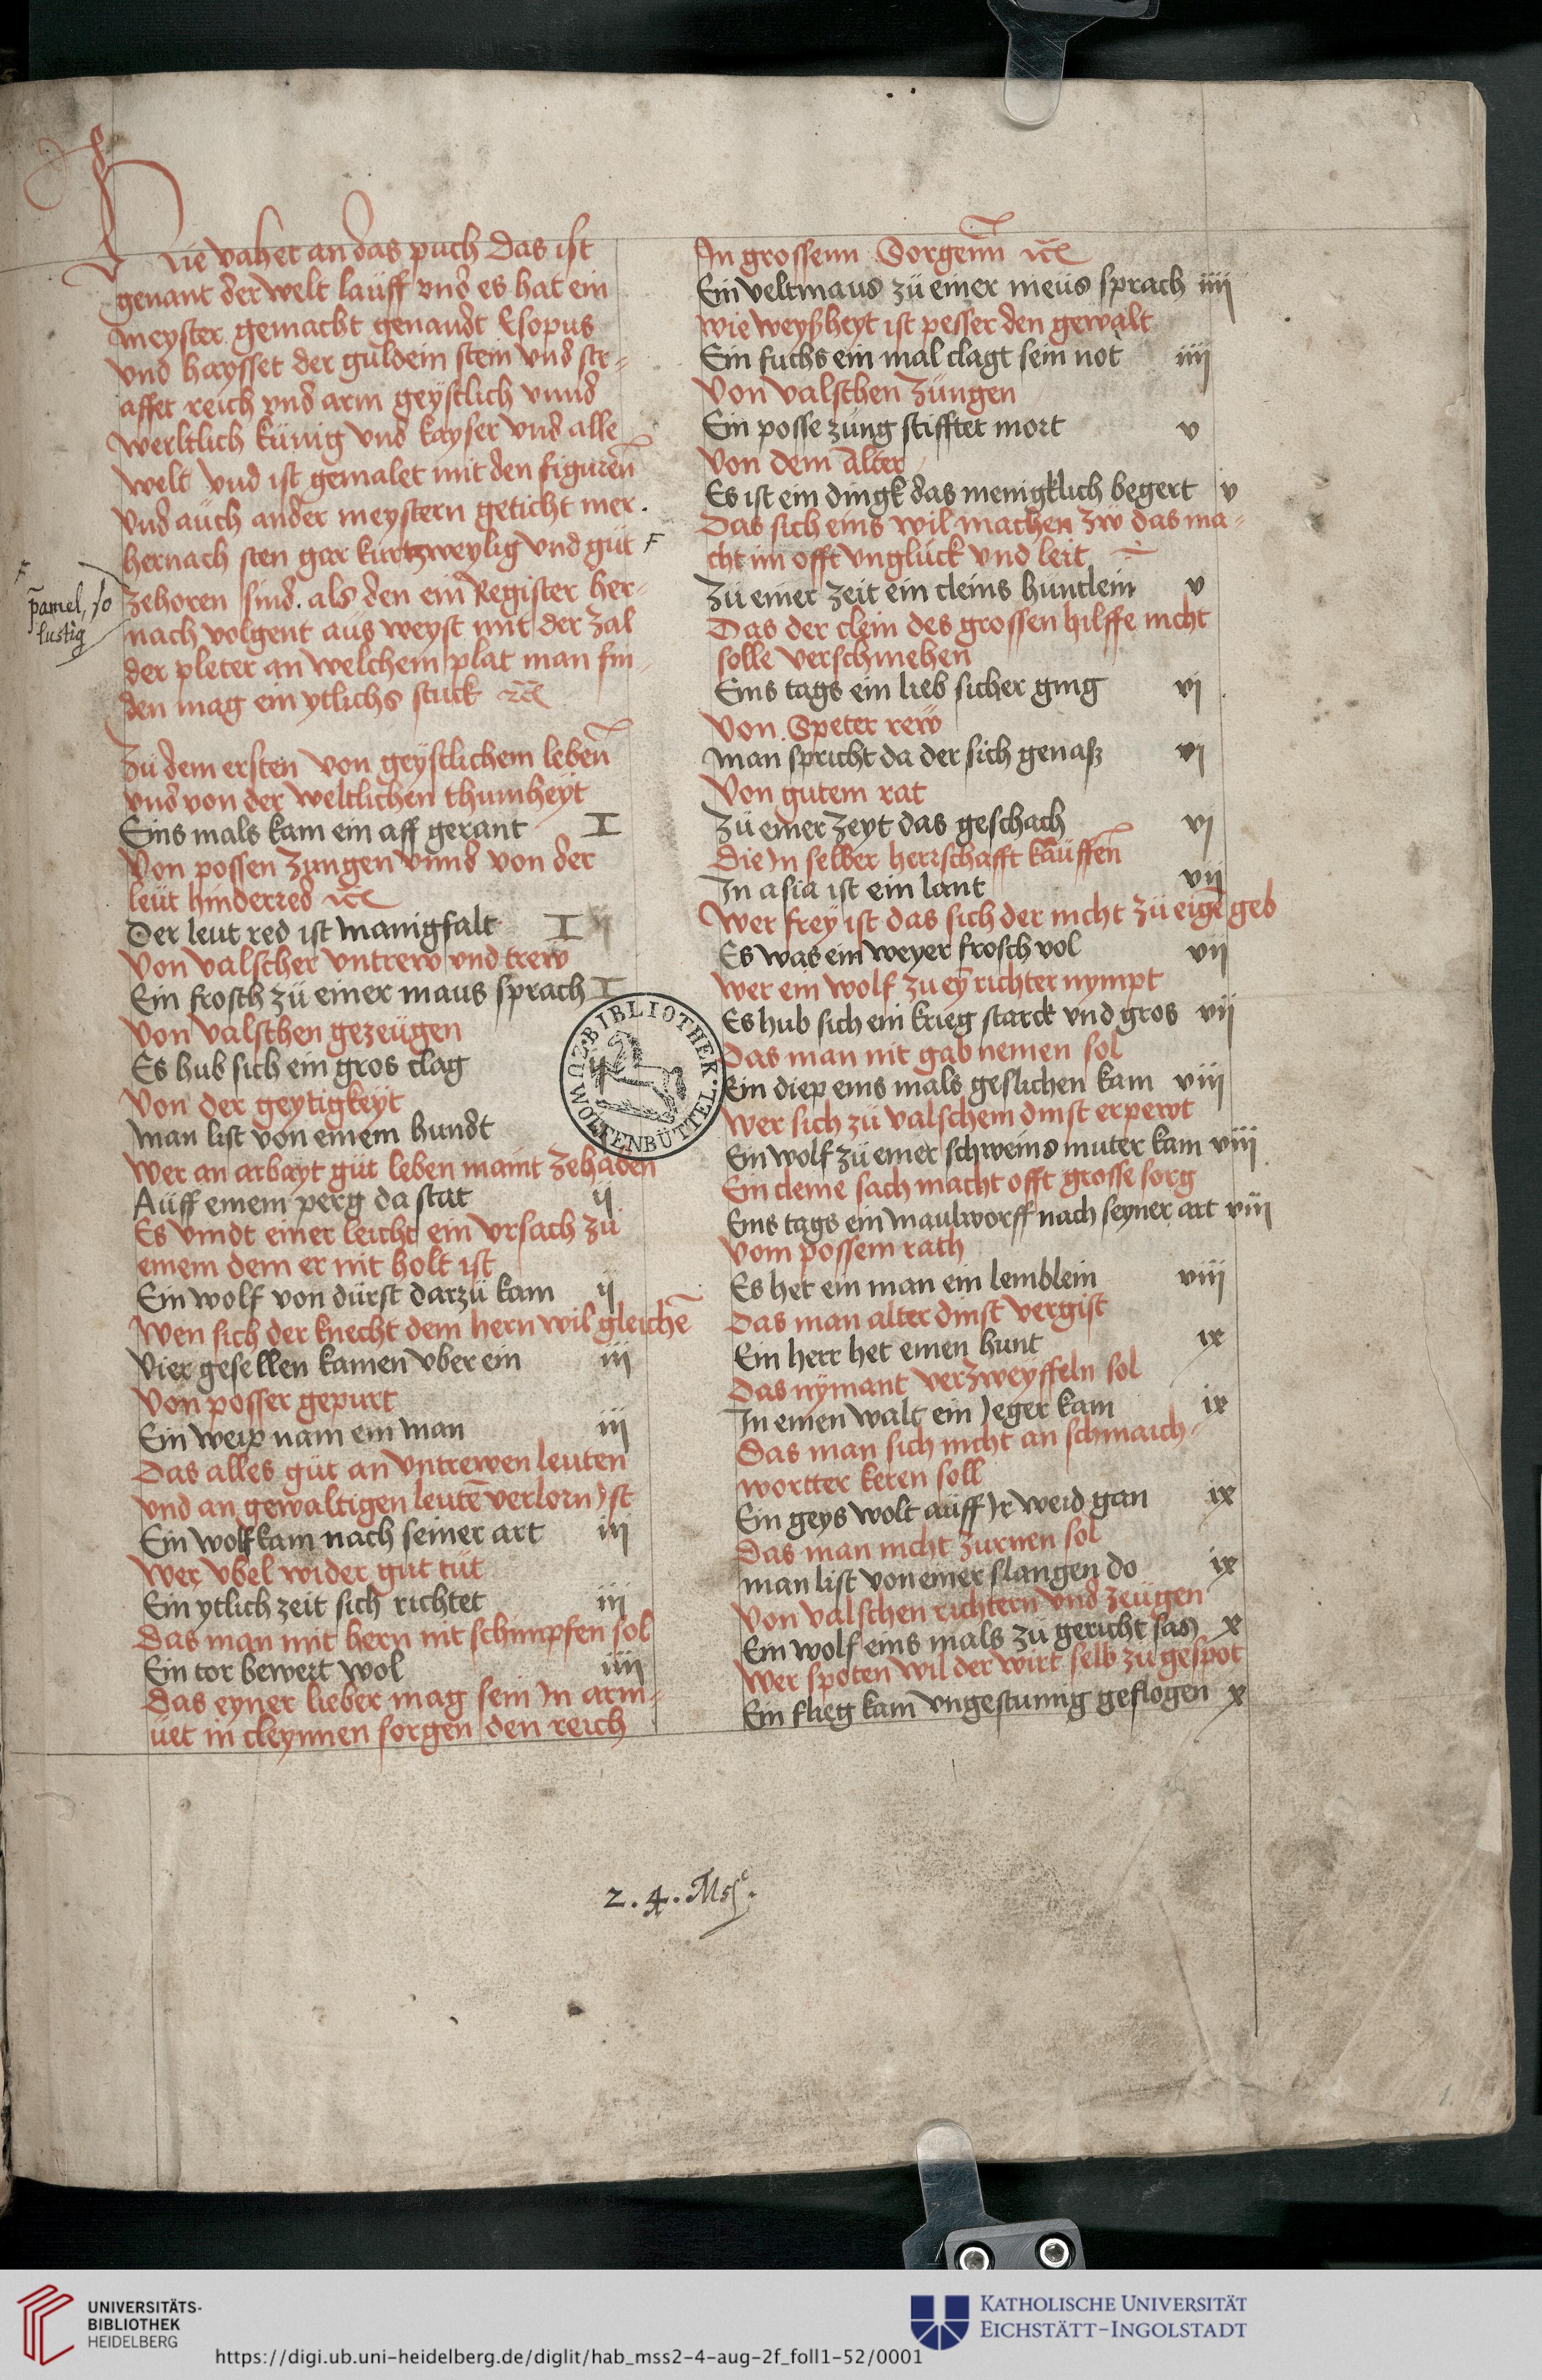 Hie vahet an das puch das ist
genant der welt lauff vnd es hat ein
meyster gemacht genandt Esopus
vnd haysset der guldein stein vnd str-
affet reich vnd arm geystlich vnnd
werltlich künig vnd kayser vnd alle
welt vnd ist gemalet mit den figurenn
vnd auch ander meystern geticht mer.
hernach sten gar kurtzweylig vnd güt F
zehoren sind. als den ein Register her-
nach volgent aüs weyst mit der zal
der pleter an welchem plat man fin-
den mag ein ytlichs stuck
F
lustig
Zü dem ersten von geystlichem lebenn
vnd von der weltlichen thumheyt
Eins mals kam ein aff gerant I
Von possen zungen vnnd von der
leüt hinderred
Der leut red ist manigfalt I
Von valscher vntrew vnd trew
Ein frosch zü einer maus sprach I
Von valschen gezeügen
Es hub sich ein gros clag ij
Von der geytigkeyt
man list von einem hundt
Wer an arbayt güt leben maint zehaden
Aüff einem perg da stat ij
Es vindt einer leicht ein vrsach zü
einem dem er nit holt ist
Ein wolf von dürst darzü kam ij
Wen sich der knecht dem hern wil gleichē
Vier gesellen kamen vber ein iij
Von posser gepurt
Ein weip nam ein man iij
Das alles güt an vntrewen leuten
vnd an gewaltigen leutē verlorn Jst
Ein wolf kam nach seiner art iij
Wer vbel wider gut tüt
Ein ytlich zeit sich richtet iij
Das man mit hern nit schimpfen sol
Ein tor bewert wol iiij
Das eyner lieber mag sein Jn arm-
uet in cleynnen sorgen den reich
Jn grossenn Sorgenn
Ein veltmaus zü einer meüs sprach iiij
Wie weyßheyt ist pesser den gewalt
Ein fuchs ein mal clagt sein not iiij
Von valschen züngen
Ein posse zung stifftet mort v
Von dem alter
Es ist ein dingk das menigklich begert v
Das sich eins wil machen zw das ma-
cht im offt vnglück vnd leit
Zü einer zeit ein cleins huntlein v
Das der clein des grossen hilffe nicht
solle verschmehen
Eins tags ein lieb sicher ging vj
Von Speter rew
man spricht da der sich genasz vj
Von gutem rat
Zü einer zeyt das geschach vj
Die Jn selber herrschafft kauffenn
Jn asia ist ein lant vij
Wer frey ist das sich der nicht zü eigē geb
Es was ein weyer frosch vol vij
Wer ein wolf zu eȳ richter nympt
Es hub sich ein krieg starck vnd gros vij
Das man nit gab nemen sol
Ein diep eins mals geslichen kam viij
Wer sich zü valschem dinst erpewt
Ein wolf zü einer schweins muter kam viij
Ein cleine sach macht offt grosse sorg
Eins tags ein maulworff nach seyner art viij
Vom possem rath
Es het ein man ein lemblein viij
Das man alter dinst vergist
Ein herr het einen hunt ix
Das nymant verzweyffeln sol
Jn einen walt ein Jeger kam ix
Das man sich nicht an schmaich-
wortter keren soll
Ein geys wolt aüff Jr weid gan ix
Das man nicht zurnen sol
man list von einer slangen do ix
Von valschen richtern vnd zeügen
Ein wolf eins mals zü gericht sas x
Wer spoten wil der wirt selb zu gespot
Ein flieg kam vngestumig geflogen x
BIBLIOTHEK
ZU WOLFENBÜTTEL
2.4. Mss.
1.
UNIVERSITÄTS-
BIBLIOTHEK
HEIDELBERG
KATHOLISCHE UNIVERSITÄT
EICHSTÄTT-INGOLSTADT
https://digi.ub.uni-heidelberg.de/diglit/hab_mss2-4-aug-2f_foll1-52/0001